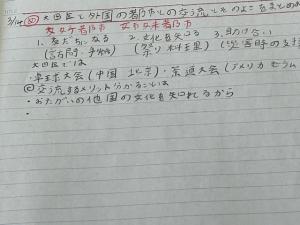 3/14 大田区と外国の都市との交流とそのよさをまとめ
友好都市
1. 友だちになる 2. 文化を知る 3. 助け合い
(祭り 料理) (災害時の支
大田区では
(中国 北京) 大会 (アメリカ セーラム
◎交流するメリット分かることは
・おたがいの他国の文化を知れるから
・